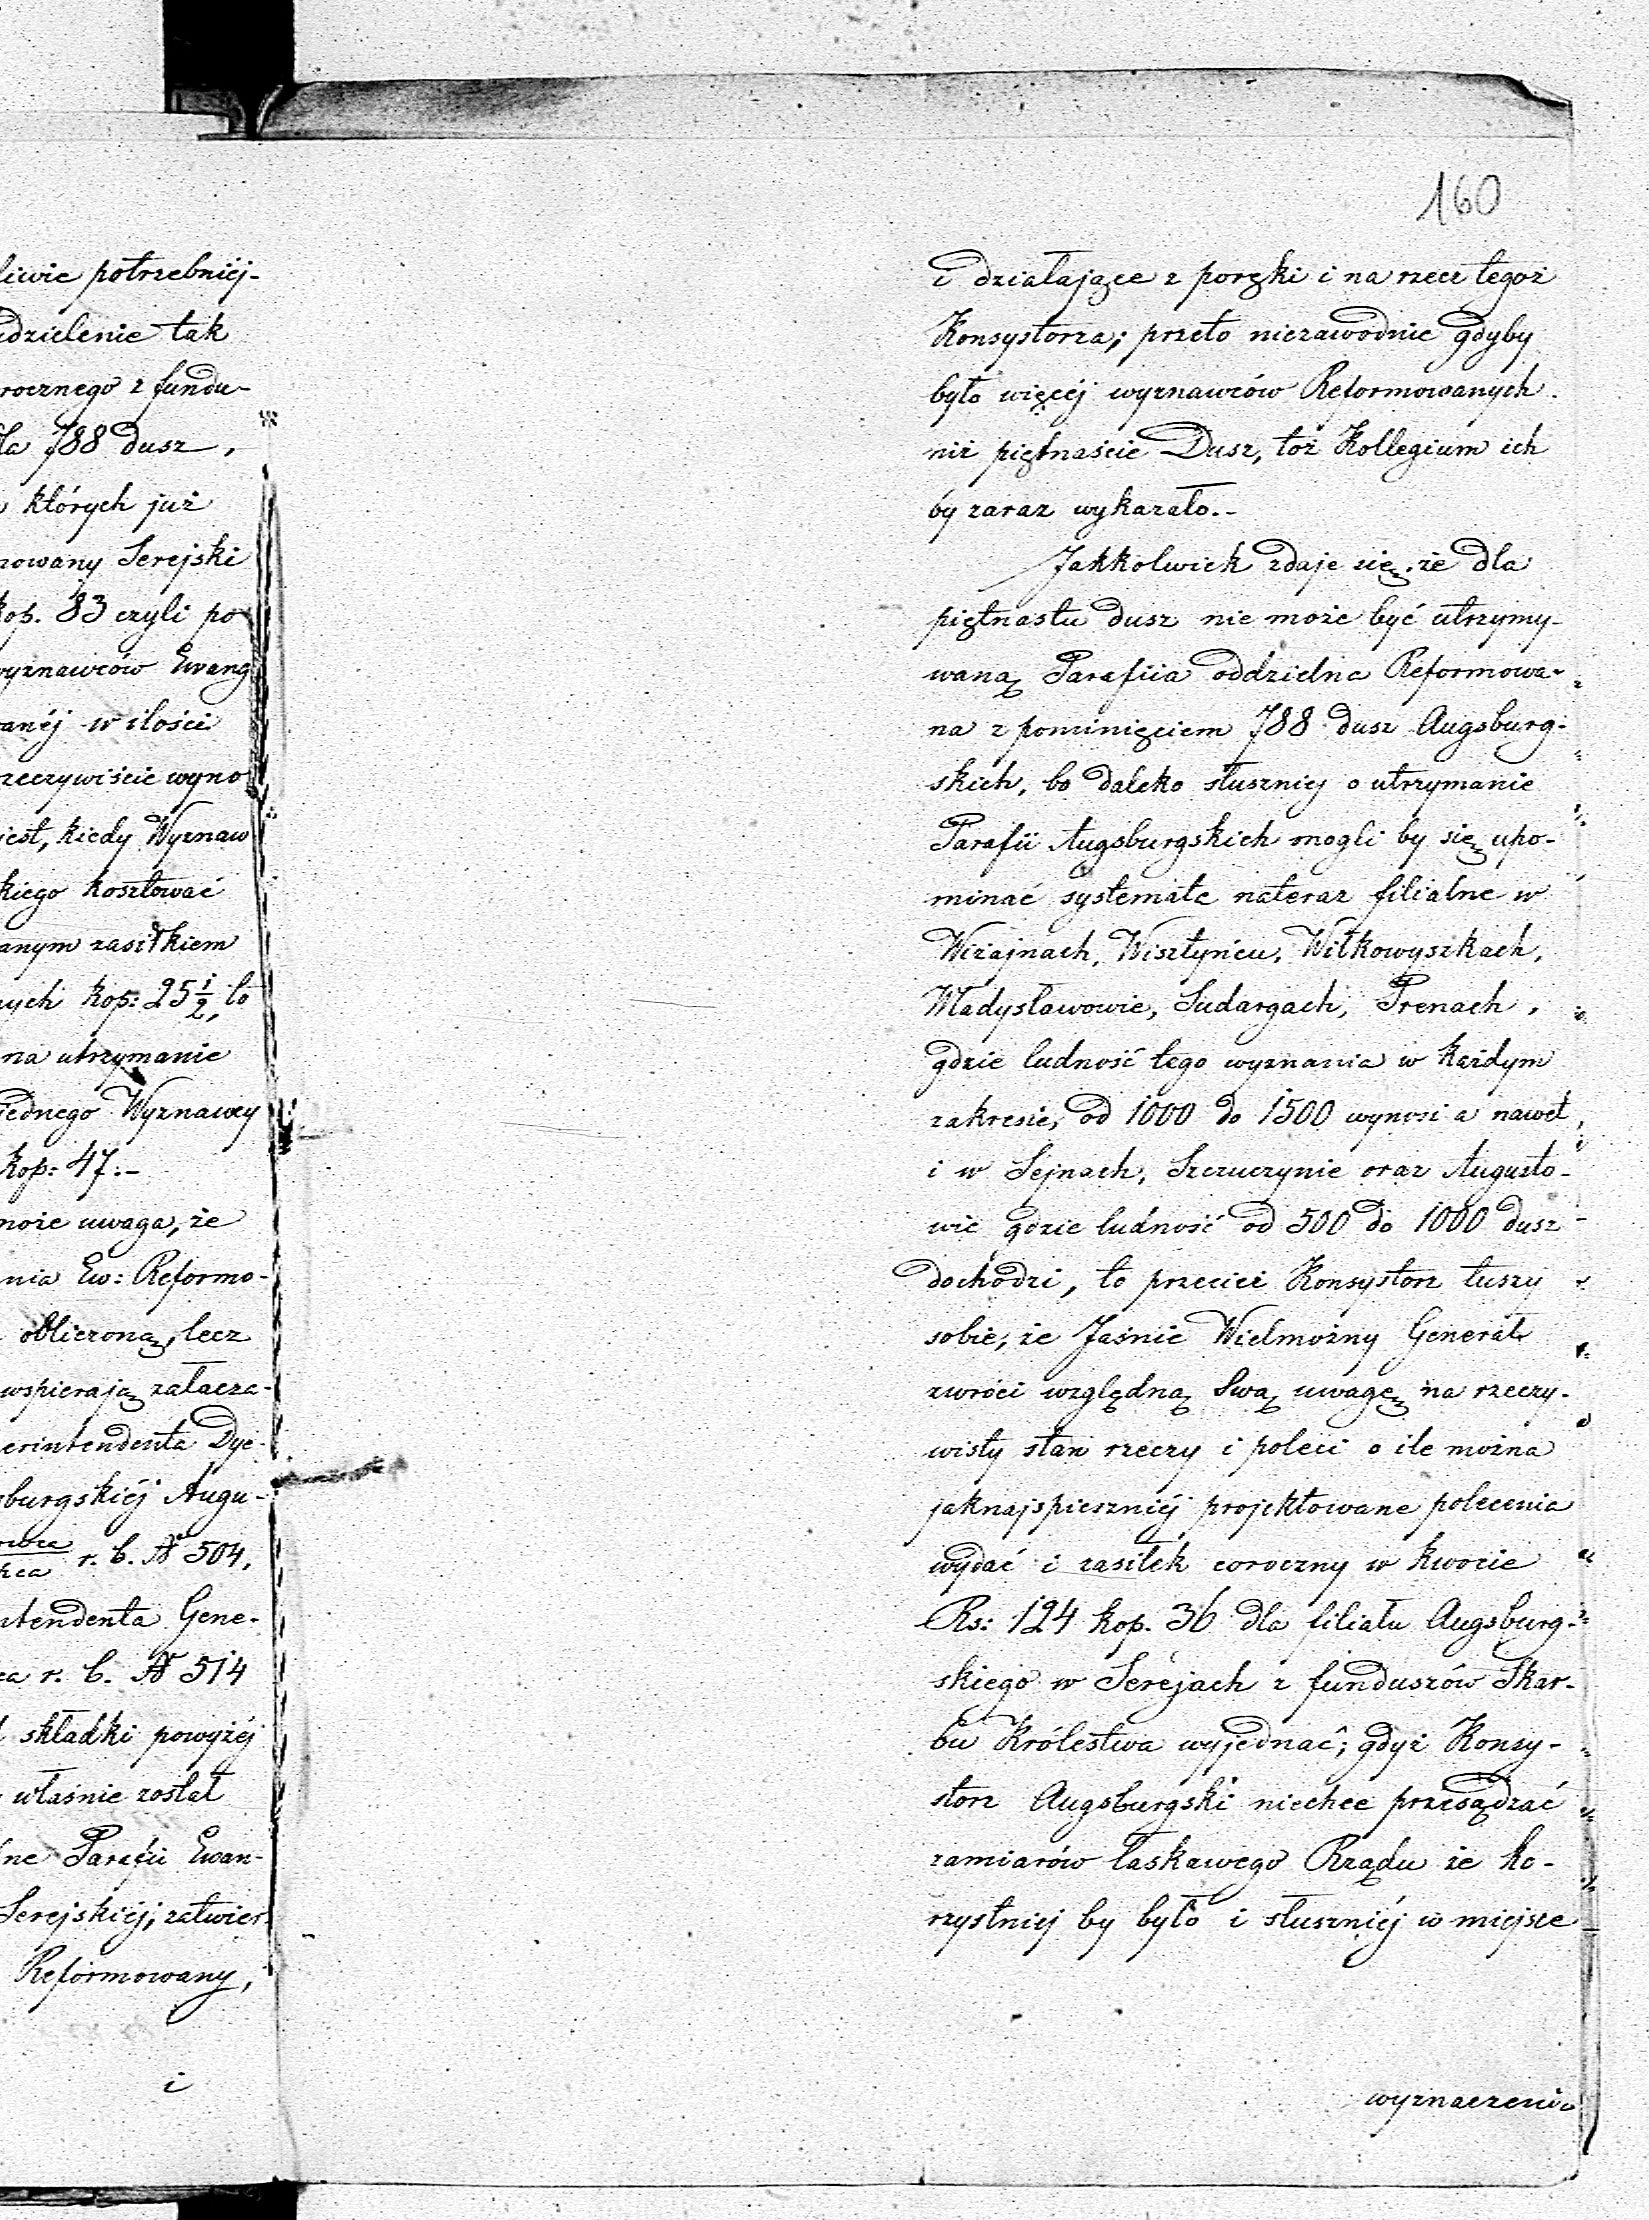 liwie potrzebniéj-
udzielenie tak
rocznego z fundu-
dla 788 dusz,
których już
mowany Serejski
kop. 83 czyli po
wyznawców Ewang
wanéj w ilości
rzeczywiście wyno
jest, kiedy Wyznaw
kiego kosztować
anym zasiłkiem
nych kop: 25 1/2, to
na utrzymanie
jednego Wyznawcy
kop: 47.-
może uwaga, że
nia Ew: Reformo-
obliczoną, lecz
wspierają załącza-
erintendenta Dye-
sburgskiéj Augu-
r. b. № 504,
ntendenta Gene-
ca r. b. № 514
składki powyżéj
właśnie został
lne Parafii Ewan-
Serejskiéj, zatwier-
Reformowany,
i
160
i działające z poręki i na rzecz tegoż
Konsystorza; przeto niezawodnie gdyby
było więcéj wyznawców Reformowanych
niż piętnaście Dusz, toż Kollegium ich
by zaraz wykazało.-
Jakkolwiek zdaje się, że dla
piętnastu dusz nie może być utrzymy-
waną Parafiia oddzielna Reformowa-
na z pominięciem 788 dusz Augsburg-
skich, bo daleko słuszniej o utrzymanie
Parafii Augsburgskich mogli by się upo-
minać systemata nateraz filialne w
Wiżajnach, Wisztyńcu, Wiłkowyszkach,
Władysławowie, Sudargach, Prenach,
gdzie ludność tego wyznania w każdym
zakresie, od 1000 do 1500 wynosi a nawet
i w Sejnach, Szczuczynie oraz Augusto-
wie gdzie ludność od 500 do 1000 dusz
dochodzi, to przecież Konsystorz tuszy
sobie, że Jaśnie Wielmożny Generał
zwróci względną Swą uwagę na rzeczy-
wisty stan rzeczy i poleci o ile można
jaknajspieszniéj projektowane polecenia
wydać i zasiłek coroczny w kwocie
Rs: 124 kop. 36 dla filiału Augsburg-
skiego w Serejach z funduszów Skar-
bu Królestwa wyjednać; gdyż Konsy-
storz Augsburgski niechce przesądzać
zamiarów łaskawego Rządu że ko-
rzystniej by było i słuszniéj w miejsce
wyznaczenia